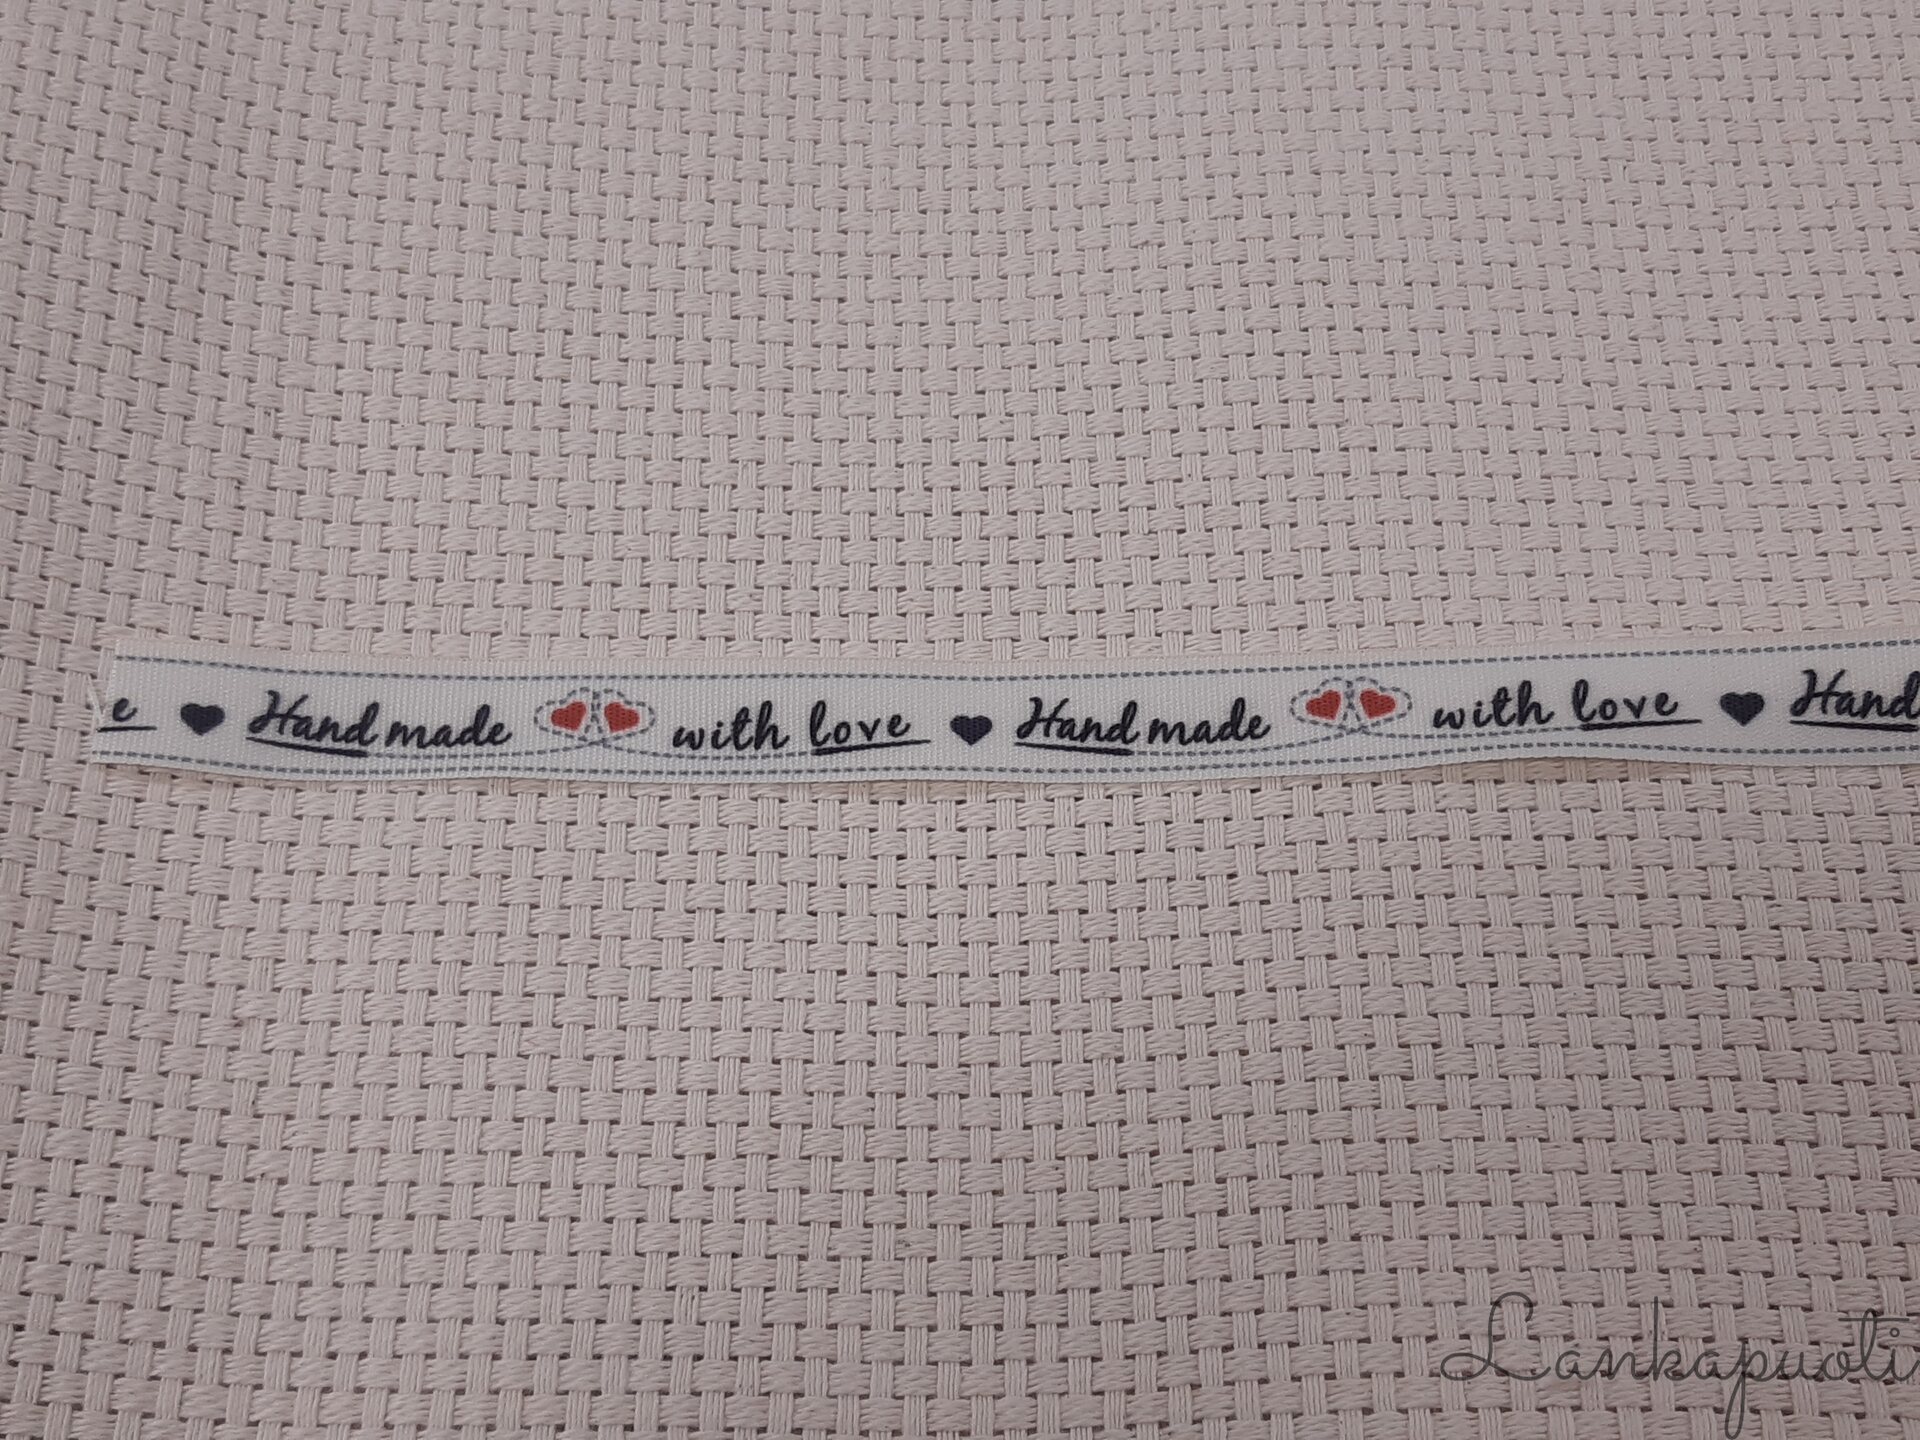 e Hand made with love Hand made with love Hand
Lankapuoti